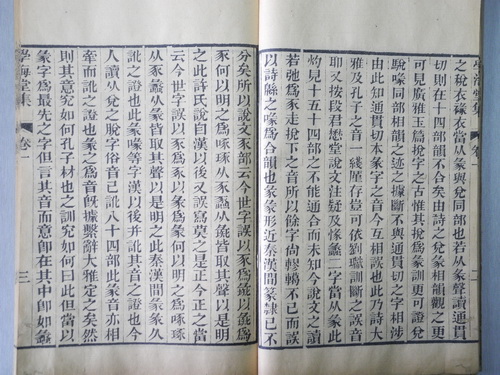 學海堂集 卷一 二
之稅衣祿衣當从彖與兌同部也若从彖聲讀通貫
切則在十四部韻不合矣由詩之兌彖相韻觀之更
可見廣雅玉篇挩字之古惟其挩爲彖訓更可證兌
脫喙同部相韻之迹之據斷不與通貫切之字相涉
由此知通貫切本篆字之音今互相訛也此乃詩大
雅及孔子之音一綫塵存豈可依劉瓛訓斷之誤音
耶又按段君懋堂說文注疑及掾蠡二字當从彖此
灼見十五十四部之不能通合而未知今說文之讀
若弛爲豕走挩下之音所以餘字尚轇轕不已若
以詩緜之喙爲合韻也篆彖形近秦漢間篆隸已不
分矣所以說文豕部云今世字誤以豕爲彘以彘爲
豕何以明之爲啄琢从豕蠡从彘皆取其聲以是明
之此許氏說自漢以後又誤寫莫之是正今正之當
云今世字誤以豕爲豖以彖爲何以明之爲啄琢
从豖蠡从彖皆取其聲以是明之此秦漢間彖
訛之證也今此彖喙等字漢以後并訛其音之證也今
人讀从兌之脫字俗音已訛八十四部此彖音亦相
牽而訛之證也今彖之爲音旣據繫辭大雅定之矣然
則其意究如何孔子材也之訓究如何曰此但當以
彖字爲最先之字但言其音而意卽在其中卽如蠡
學海堂集 卷一 三